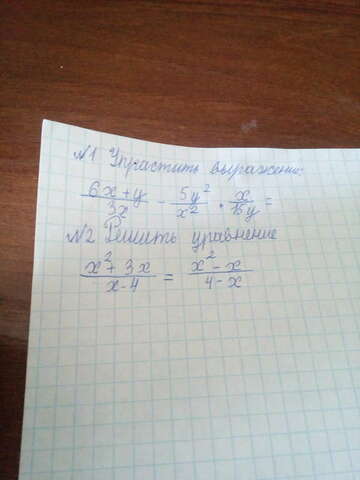 №1 Упрастить выражение:
(6x+y)/(3x) - (5y²)/(x²) · x/(15y) =
№2 Решить уравнение
(x²+3x)/(x-4) = (x²-x)/(4-x)